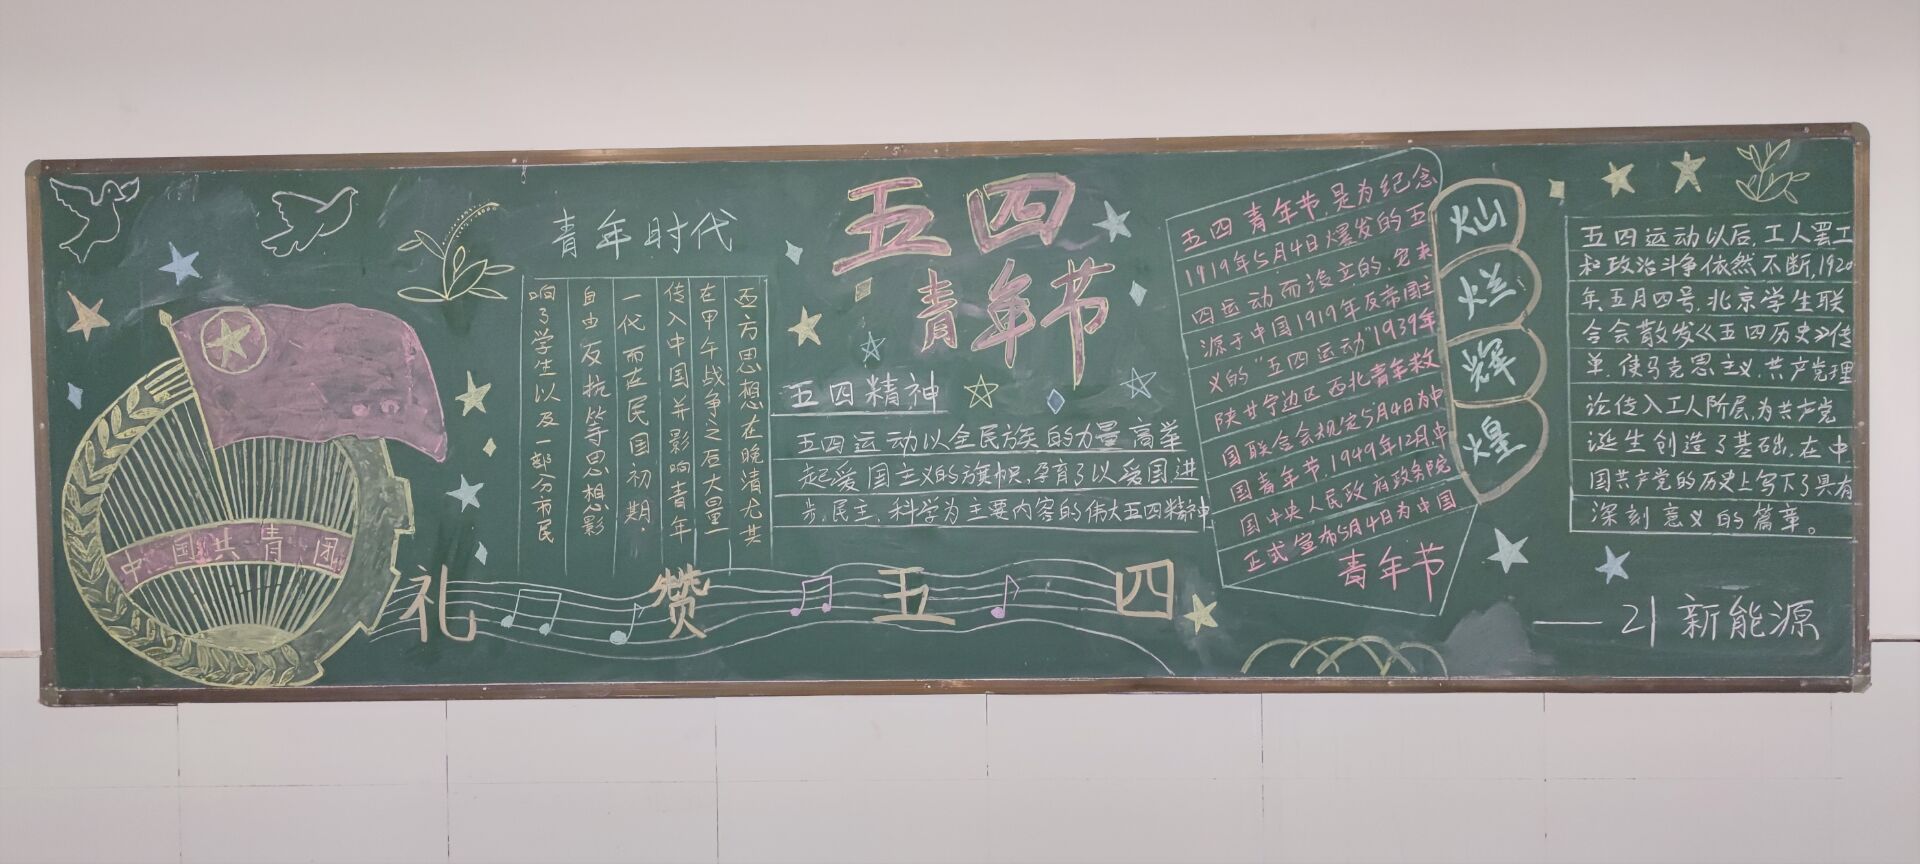 中国共青团
青年时代
西方思想在晚清尤其
在甲午战争之后大量
传入中国并影响青年
一代而在民国初期
自由反抗等思想影
响了学生以及一部分市民
五四
青年节
五四精神
五四运动以全民族的力量高举
起爱国主义的旗帜,孕育了以爱国、进
步、民主、科学为主要内容的伟大五四精神
礼赞五四
五四青年节,是为纪念
1919年5月4日爆发的五
四运动而设立的,它来
源于中国1919年反帝国主
义的“五四运动”1939年
陕甘宁边区西北青年救
国联合会规定5月4日为中
国青年节,1949年12月中
国中央人民政府政务院
正式宣布5月4日为中国
青年节
灿
烂
辉
煌
五四运动以后,工人罢工
和政治斗争依然不断,1920
年、五月四号,北京学生联
合会散发《五四历史》传
单,使马克思主义,共产党理
论传入工人阶层,为共产党
诞生创造了基础,在中
国共产党的历史上写下了具有
深刻意义的篇章。
——21新能源